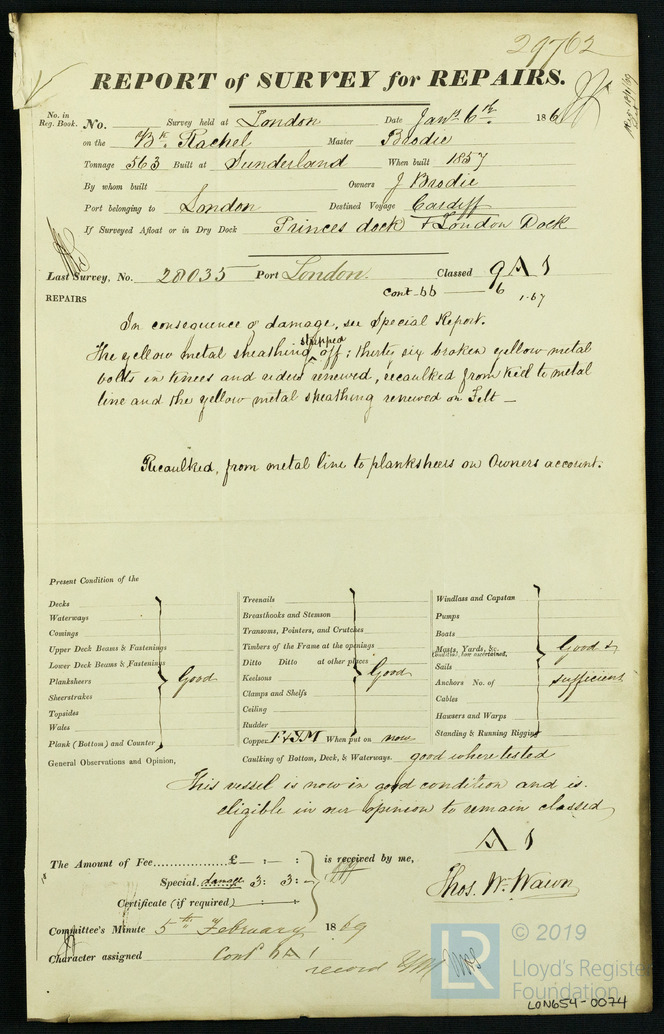 29762
REPORT of SURVEY for REPAIRS.
No. in Reg. Book. No. Survey held at London Date Jany. 6th. 186
on the Bk Rachel Master Brodie
Tonnage 563 Built at Sunderland When built 1857
By whom built Owners J Brodie
Port belonging to London Destined Voyage Cardiff
If Surveyed Afloat or in Dry Dock Princes dock & London Dock
Last Survey, No. 28035 Port London. Classed 9 A 1
REPAIRS cont-bb 6 1-67
In consequence of damage, see Special Report.
The yellow metal sheathing stripped off; thirty six broken yellow metal
bolts in knees and riders renewed, recaulked from keel to metal
line and the yellow metal sheathing renewed on Felt —
Recaulked, from metal line to planksheers on Owners account.
Present Condition of the
Decks
Waterways
Comings
Upper Deck Beams & Fastenings
Lower Deck Beams & Fastenings
Planksheers Good
Sheerstrakes
Topsides
Wales
Plank (Bottom) and Counter
Treenails
Breasthooks and Stemson
Transoms, Pointers, and Crutches
Timbers of the Frame at the openings
Ditto Ditto at other places
Keelsons Good
Clamps and Shelfs
Ceiling
Rudder
Copper F & YM When put on now
Windlass and Capstan
Pumps
Boats
Masts, Yards, &c. Good &
Condition, how ascertained,
Sails
Anchors No. of sufficient
Cables
Hawsers and Warps
Standing & Running Rigging
General Observations and Opinion, Caulking of Bottom, Deck, & Waterways. good where tested
This vessel is now in good condition and is
eligible in our opinion to remain classed
A 1
The Amount of Fee............... £ - : - : is received by me,
Special damage 3: 3: -
Certificate (if required)
Thos. W. Wawn
Committee's Minute 5th February 1869
Character assigned Cont bA 1
record YM
© 2019
LR
Lloyd's Register
Foundation
LON654-0074